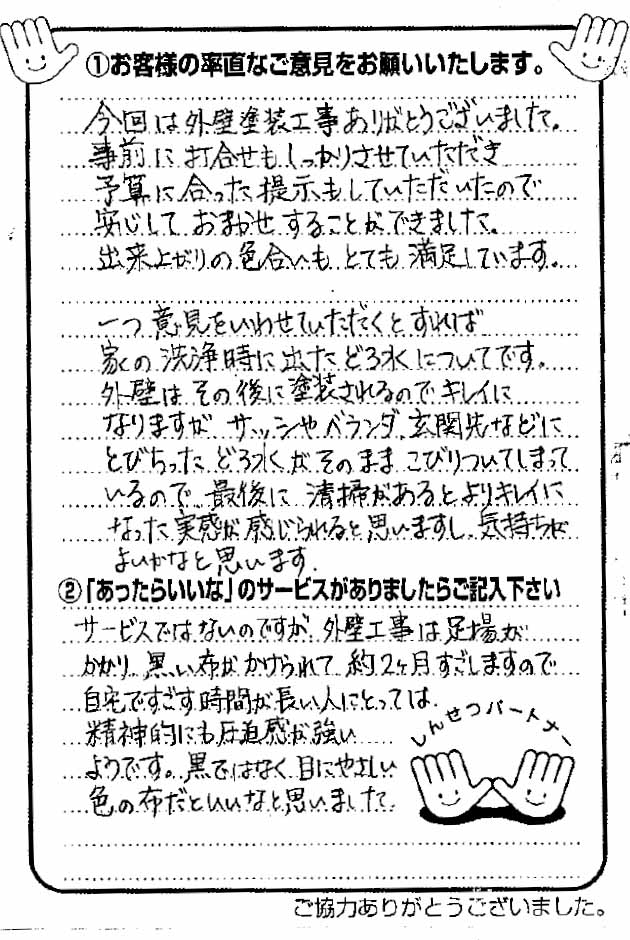 ①お客様の率直なご意見をお願いいたします。
今回は外壁塗装工事ありがとうございました。
事前に打合せもしっかりさせていただき
予算に合った提示もしていただいたので
安心しておまかせすることができました。
出来上がりの色合いもとても満足しています。
一つ意見をいわせていただくとすれば
家の洗浄時に出たどろ水についてです。
外壁はその後に塗装されるのでキレイに
なりますが サッシやベランダ、玄関先などに
とびちったどろ水がそのままこびりついてしまって
いるので、最後に清掃があるとよりキレイに
なった実感が感じられると思いますし、気持ちが
よいかなと思います.
②「あったらいいな」のサービスがありましたらご記入下さい
サービスではないのですが、外壁工事は足場が
かかり、黒い布がかけられて 約2ヶ月すごしますので
自宅ですごす時間が長い人にとっては、
精神的にも圧迫感が強い
ようです。黒ではなく目にやさしい
色の布だといいなと思いました。
しんせつパートナー
ご協力ありがとうございました。